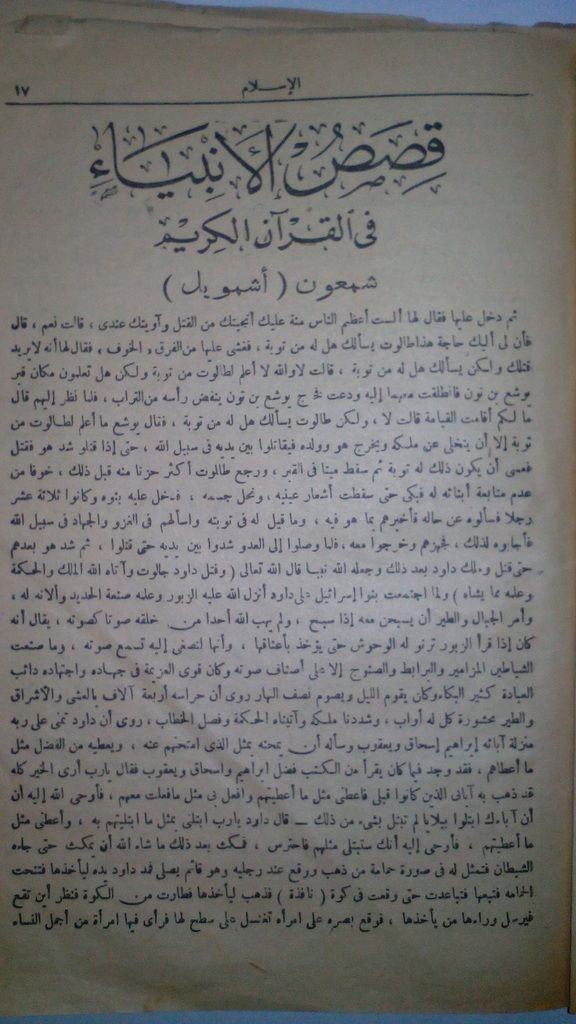 الإسلام
١٧
قِصَصُ الْأَنْبِيَاءِ
فى القرآن الكريم
شمعون ( أشمويل )
ثم دخل عليها فقال لها ألست أعظم الناس منة عليك أنجيتك من القتل وآويتك عندى ، قالت نعم ، قال
فأن لى أليك حاجة هذا طالوت يسألك هل له من توبة ، فغشى عليها من الفرق و الخوف ، فقال لها أنه لا يريد
قتلك ولكن يسألك هل له من توبة ، قالت لا والله لا أعلم لطالوت من توبة ولكن هل تعلمون مكان قبر
يوشع بن نون فانطلقت معهما إليه ودعت فخرج يوشع بن نون ينفض رأسه من التراب ، فلما نظر إليهم قال
ما لكم أقامت القيامة قالت لا ، ولكن طالوت يسألك هل له من توبة ، فقال يوشع ما أعلم لطالوت من
توبة إلا أن يتخلى عن ملكه ويخرج هو وولده فيقاتلوا بين يديه فى سبيل الله ، حتى إذا قتلو شد هو فقتل
فعسى أن يكون ذلك له توبة ثم سقط ميتا فى القبر ، ورجع طالوت أكثر حزنا منه قبل ذلك ، خوفا من
عدم متابعة أبنائه له فبكى حتى سقطت أشعار عينيه ، ونحل جسمه ، فدخل عليه بنوه وكانوا ثلاثة عشر
رجلا فسألوه عن حاله فأخبرهم بما هو فيه ، وما قيل له فى توبته واسألهم فى الغزو والجهاد فى سبيل الله
فأجابوه لذلك ، فجهزهم وخرجوا معه ، فلما وصلوا إلى العدو شدوا بين يديه حتى قتلوا ، ثم شد هو بعدهم
حتى قتل وملك داود بعد ذلك وجعله الله نبيا قال الله تعالى ( وقتل داود جالوت وآتاه الله الملك والحكمة
وعلمه مما يشاء ) ولما اجتمعت بنوا إسرائيل على داود أنزل الله عليه الزبور وعلمه صنعة الحديد وألانه له ،
وأمر الجبال والطير أن يسبحن معه إذا سبح ، ولم يهب الله أحدا من خلقه صوتا كصوته ، يقال أنه
كان إذا قرأ الزبور ترنو له الوحوش حتى يؤخذ بأعناقها ، وأنها لتصغى إليه تسمع صوته ، وما صنعت
الشياطين المزامير والبرابط والصنوج إلا على أصناف صوته وكان قوى العزيمة فى جهاده واجتهاده دائب
العبادة كثير البكاء وكان يقوم الليل ويصوم نصف النهار روى أن حراسه أربعة آلاف بالعشى والأشراق
والطير محشورة كل له أواب ، وشددنا ملكه وآتيناه الحكمة وفصل الخطاب ، روى أن داود تمنى على ربه
منزلة آبائه إبراهيم إسحاق ويعقوب وسأله أن يمحنه بمثل الذى امتحنهم عنه ، ويعطيه من الفضل مثل
ما أعطاهم ، فقد وجد فيما كان يقرأ من الكتب فضل ابراهيم واسحاق ويعقوب فقال يارب أرى الخير كله
قد ذهب به آبائى الذين كانوا قبلى فاعطى مثل ما أعطيتهم وافعل بى مثل مافعلت معهم ، فأوحى الله إليه أن
أن آباءك ابتلوا ببلايا لم تبتل بشىء من ذلك — قال داود يارب ابتلنى بمثل ما ابتليتهم به ، وأعطى مثل
ما أعطيتهم ، فأوحى إليه أنك ستبتلى مثلهم فاحترس ، فمكث بعد ذلك ما شاء الله أن يمكث حتى جاءه
الشيطان فتمثل له فى صورة حمامة من ذهب ورقع عند رجليه وهو قائم يصلى فمد داود يده ليأخذها فتنحت
الحمامه فتبعها فتباعدت حتى وقعت فى كوة ( نافذة ) فذهب ليأخذها فطارت من الكوة فنظر أين تقع
فيرسل وراءها من يأخذها ، فوقع بصره على امرأه تغتسل على سطح لها فرأى فيها امرأة من أجمل النساء